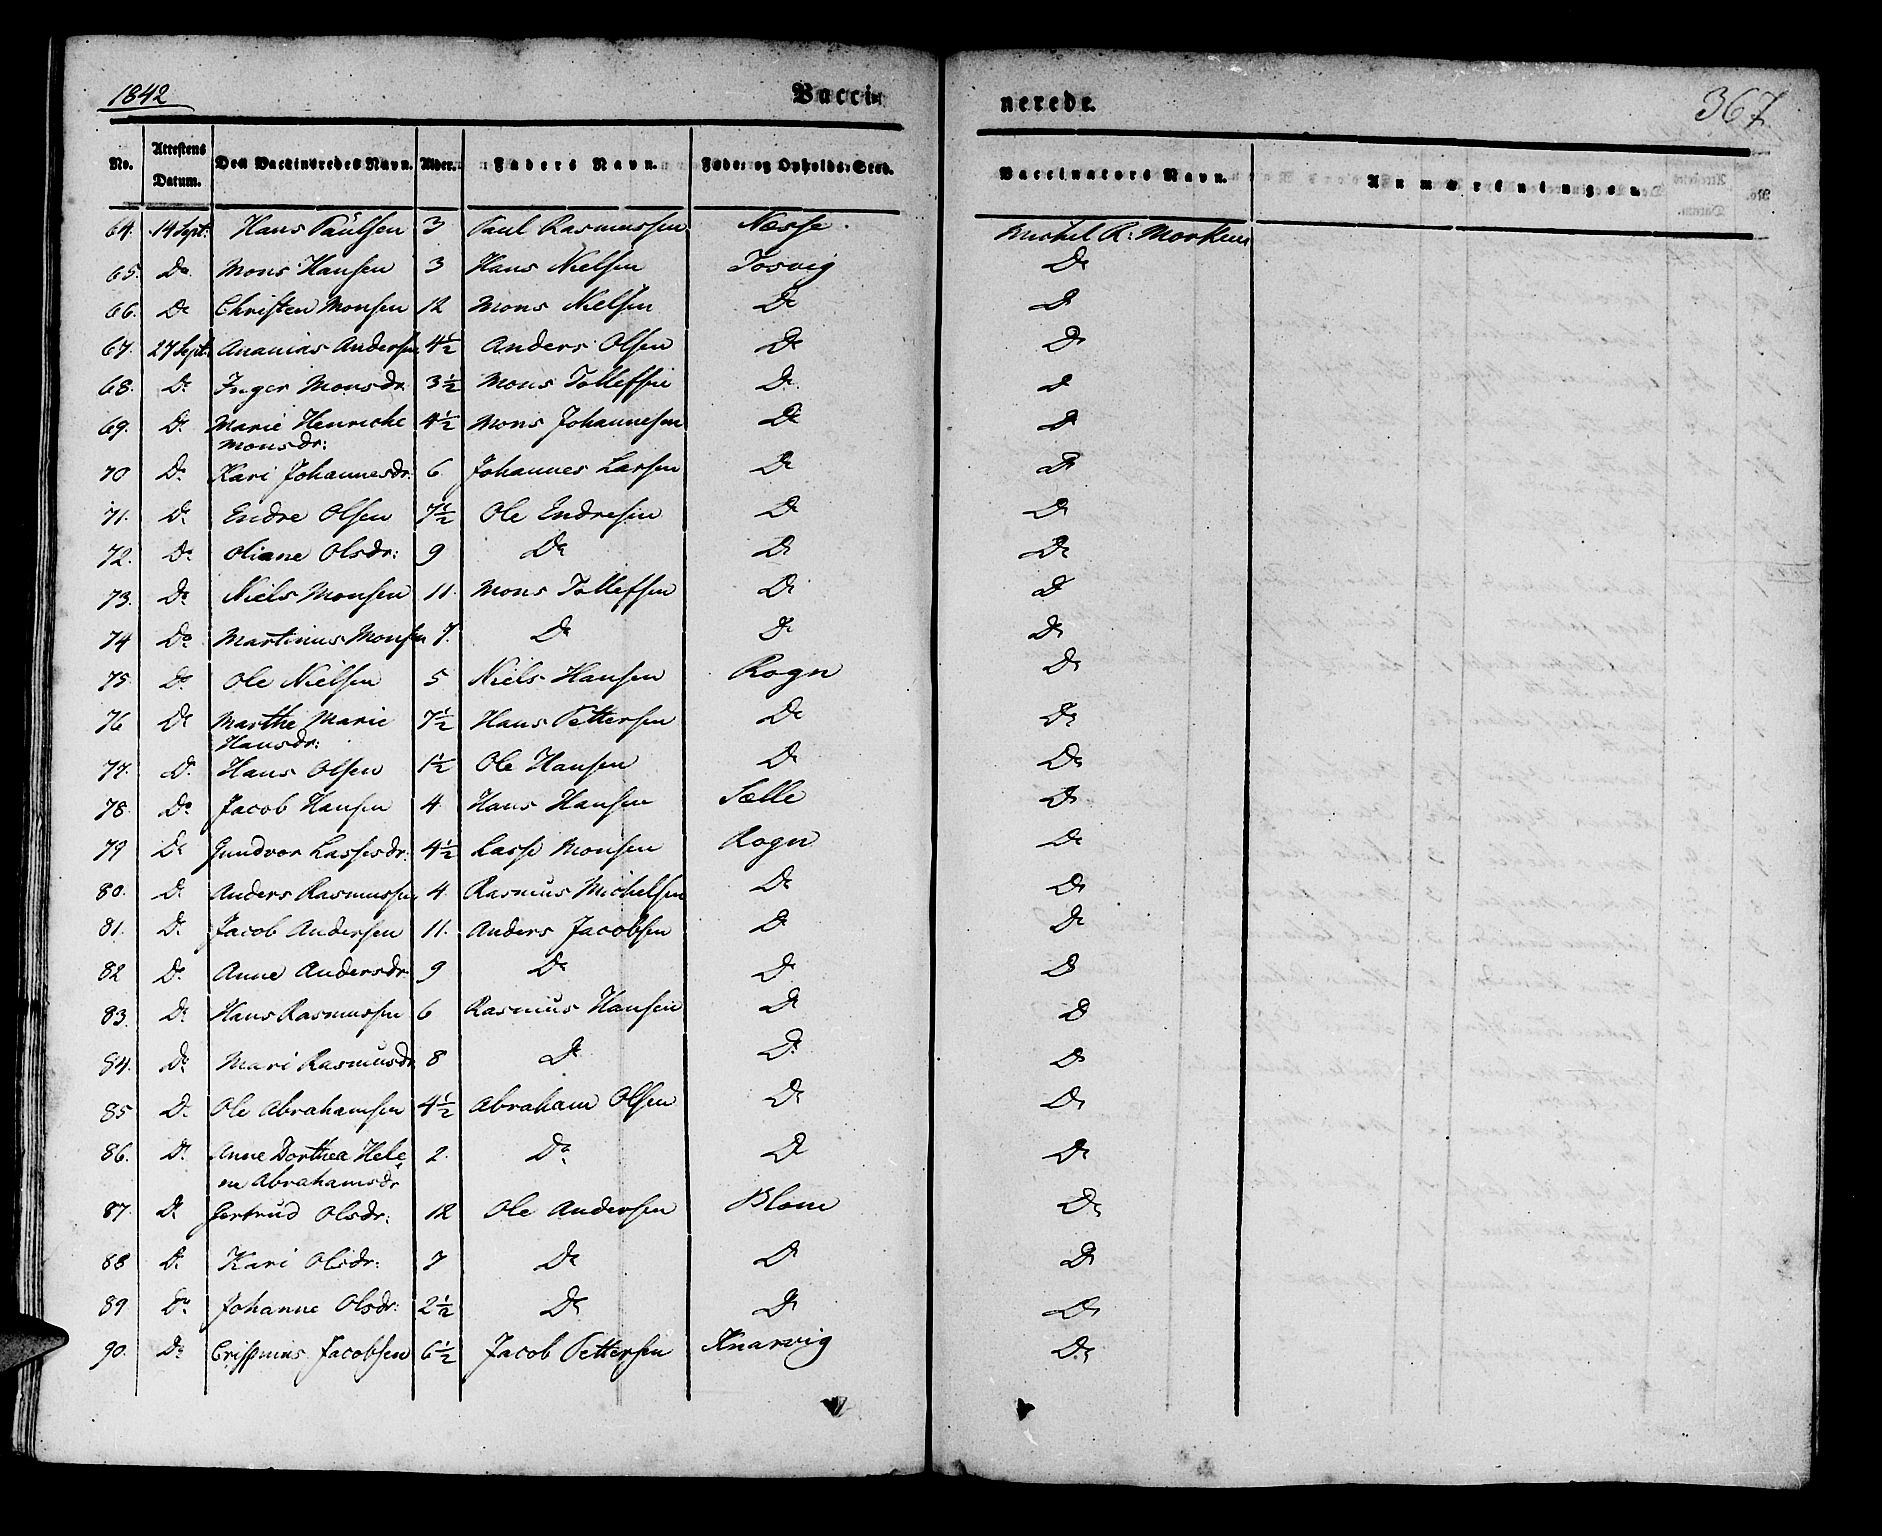 1842 Vacci= nerede. 367
No. Attestens Datum. Den Vaccineredes Navn. Alder. Faders Navn. Føde= og Opholds=Sted. Vaccinators Navn. Anmærkninger.
64. 14 Sept: Hans Paulsen 3 Paul Rasmussen Næsse. Michel R: Morken
65. Do Mons Hansen 3 Hans Nielsen Tosvig Do
66. Do Christen Monsen 12 Mons Nielsen Do Do
67. 27 Sept: Ananias Andersen 4½ Anders Olsen Do Do
68. Do Inger Monsdr. 3½ Mons Tollefsen Do Do
69. Do Marie Henricke 4½ Mons Johannesen Do Do
Monsdr:
70 Do Kari Johannesdr: 6 Johannes Larsen Do Do
71. Do Endre Olsen 7½ Ole Endresen Do Do
72. Do Oliane Olsdr: 9 Do Do Do
73. Do Niels Monsen 11. Mons Tollefsen Do Do
74 Do Martinus Monsen 7. Do Do Do
75. Do Ole Nielsen 5 Niels Hansen Rogn Do
76 Do Marthe Marie 7½ Hans Pettersen Do Do
Hansdr:
77. Do Hans Olsen 1½ Ole Hansen Do Do
78. Do Jacob Hansen 4 Hans Hansen Sælle Do
79 Do Gundvor Lassesdr: 4½ Lasse Monsen Rogn Do
80. Do Anders Rasmussen 4 Rasmus Michelsen Do Do
81. Do Jacob Andersen 11. Anders Jacobsen Do Do
82 Do Anne Andersdr 9 Do Do Do
83. Do Hans Rasmussen 6 Rasmus Hansen Do Do
84. Do Mari Rasmusdr 8 Do Do Do
85 Do Ole Abrahamsen 4½ Abraham Olsen Do Do
86. Do Anne Dorthea Hele 2. Do Do Do
ne Abrahamsdr
87. Do Gertrud Olsdr: 12 Ole Andersen Blom Do
88 Do Kari Olsdr: 7 Do Do Do
89 Do Johanne Olsdr: 2½ Do Do Do
90. Do Crispinus Jacobsen 6½ Jacob Pettersen Knarvig Do